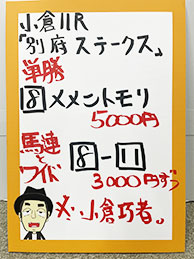 小倉11R
「別府ステークス」
単勝
8 メメントモリ
5000円
馬連とワイド
8-11
3000円ずつ
メ、小倉巧者。